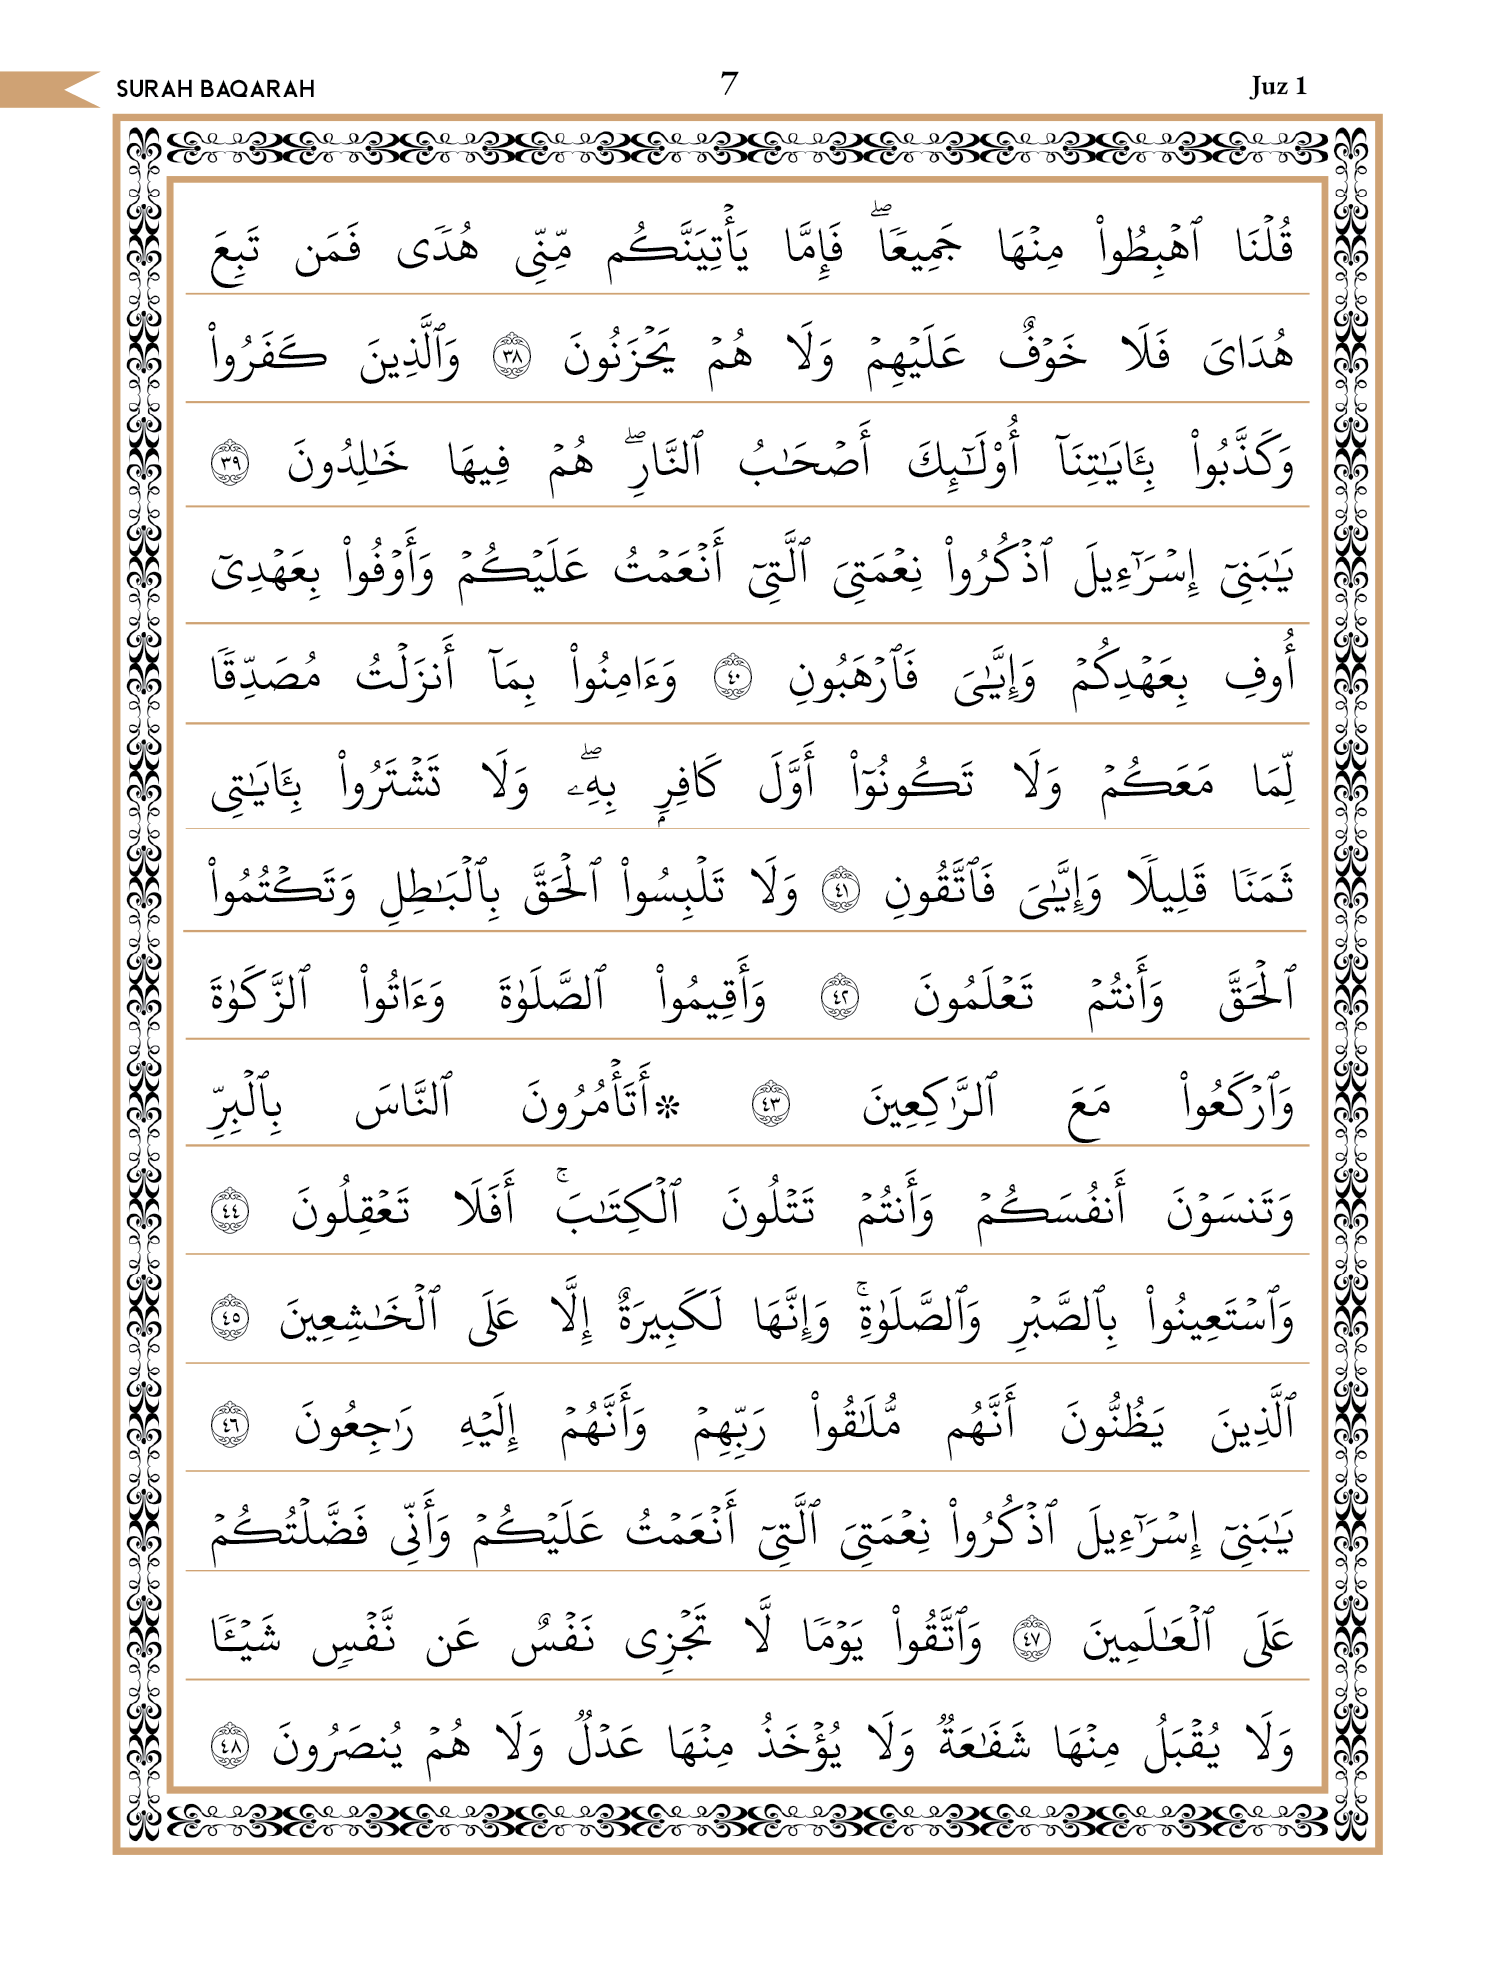 SURAH BAQARAH 7 Juz 1
قُلْنَا ٱهْبِطُوا۟ مِنْهَا جَمِيعًا ۖ فَإِمَّا يَأْتِيَنَّكُم مِّنِّى هُدًى فَمَن تَبِعَ
هُدَاىَ فَلَا خَوْفٌ عَلَيْهِمْ وَلَا هُمْ يَحْزَنُونَ ٣٨ وَٱلَّذِينَ كَفَرُوا۟
وَكَذَّبُوا۟ بِـَٔايَـٰتِنَآ أُو۟لَـٰٓئِكَ أَصْحَـٰبُ ٱلنَّارِ ۖ هُمْ فِيهَا خَـٰلِدُونَ ٣٩
يَـٰبَنِىٓ إِسْرَٰٓءِيلَ ٱذْكُرُوا۟ نِعْمَتِىَ ٱلَّتِىٓ أَنْعَمْتُ عَلَيْكُمْ وَأَوْفُوا۟ بِعَهْدِىٓ
أُوفِ بِعَهْدِكُمْ وَإِيَّـٰىَ فَٱرْهَبُونِ ٤٠ وَءَامِنُوا۟ بِمَآ أَنزَلْتُ مُصَدِّقًا
لِّمَا مَعَكُمْ وَلَا تَكُونُوٓا۟ أَوَّلَ كَافِرٍۭ بِهِۦ ۖ وَلَا تَشْتَرُوا۟ بِـَٔايَـٰتِى
ثَمَنًا قَلِيلًا وَإِيَّـٰىَ فَٱتَّقُونِ ٤١ وَلَا تَلْبِسُوا۟ ٱلْحَقَّ بِٱلْبَـٰطِلِ وَتَكْتُمُوا۟
ٱلْحَقَّ وَأَنتُمْ تَعْلَمُونَ ٤٢ وَأَقِيمُوا۟ ٱلصَّلَوٰةَ وَءَاتُوا۟ ٱلزَّكَوٰةَ
وَٱرْكَعُوا۟ مَعَ ٱلرَّٰكِعِينَ ٤٣ *أَتَأْمُرُونَ ٱلنَّاسَ بِٱلْبِرِّ
وَتَنسَوْنَ أَنفُسَكُمْ وَأَنتُمْ تَتْلُونَ ٱلْكِتَـٰبَ ۚ أَفَلَا تَعْقِلُونَ ٤٤
وَٱسْتَعِينُوا۟ بِٱلصَّبْرِ وَٱلصَّلَوٰةِ ۚ وَإِنَّهَا لَكَبِيرَةٌ إِلَّا عَلَى ٱلْخَـٰشِعِينَ ٤٥
ٱلَّذِينَ يَظُنُّونَ أَنَّهُم مُّلَـٰقُوا۟ رَبِّهِمْ وَأَنَّهُمْ إِلَيْهِ رَٰجِعُونَ ٤٦
يَـٰبَنِىٓ إِسْرَٰٓءِيلَ ٱذْكُرُوا۟ نِعْمَتِىَ ٱلَّتِىٓ أَنْعَمْتُ عَلَيْكُمْ وَأَنِّى فَضَّلْتُكُمْ
عَلَى ٱلْعَـٰلَمِينَ ٤٧ وَٱتَّقُوا۟ يَوْمًا لَّا تَجْزِى نَفْسٌ عَن نَّفْسٍ شَيْـًٔا
وَلَا يُقْبَلُ مِنْهَا شَفَـٰعَةٌ وَلَا يُؤْخَذُ مِنْهَا عَدْلٌ وَلَا هُمْ يُنصَرُونَ ٤٨